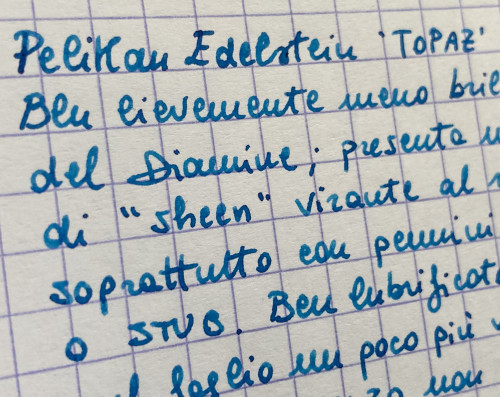 Pelikan Edelstein 'TOPAZ'
Blu lievemente meno
del Diamine; presenta
di "sheen" virante al
soprattutto con pennini
o STUB. Ben lubrificat
foglio un poco più
non